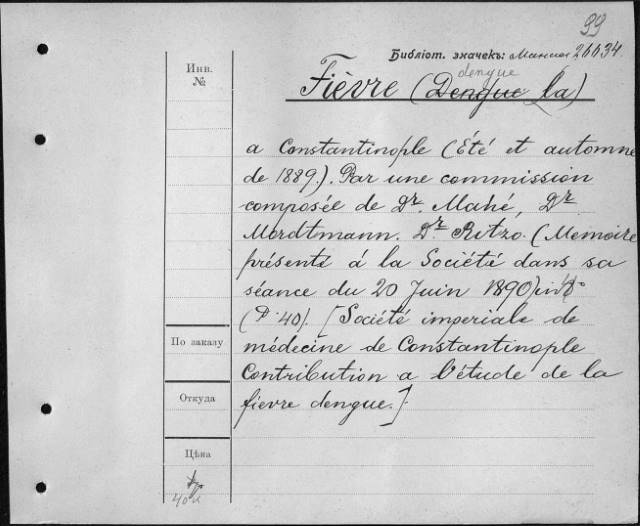 99
Библіот. значекъ: 26634
Инв.
№
dengue
Fièvre (Dengue la)
a Constantinople (Été et automne
de 1889.). Par une commission
composée de Dr. Mahé, Dr
Mordtmann. Dr Ritzo. (Memoire
présenté á la Société dans sa
séance du 20 Juin 1890) in 8°
(P. 40). [Société imperiale de
По заказу
médecine de Constantinople
Contribution a l'étude de la
Откуда
fievre dengue.].
Цѣна
40